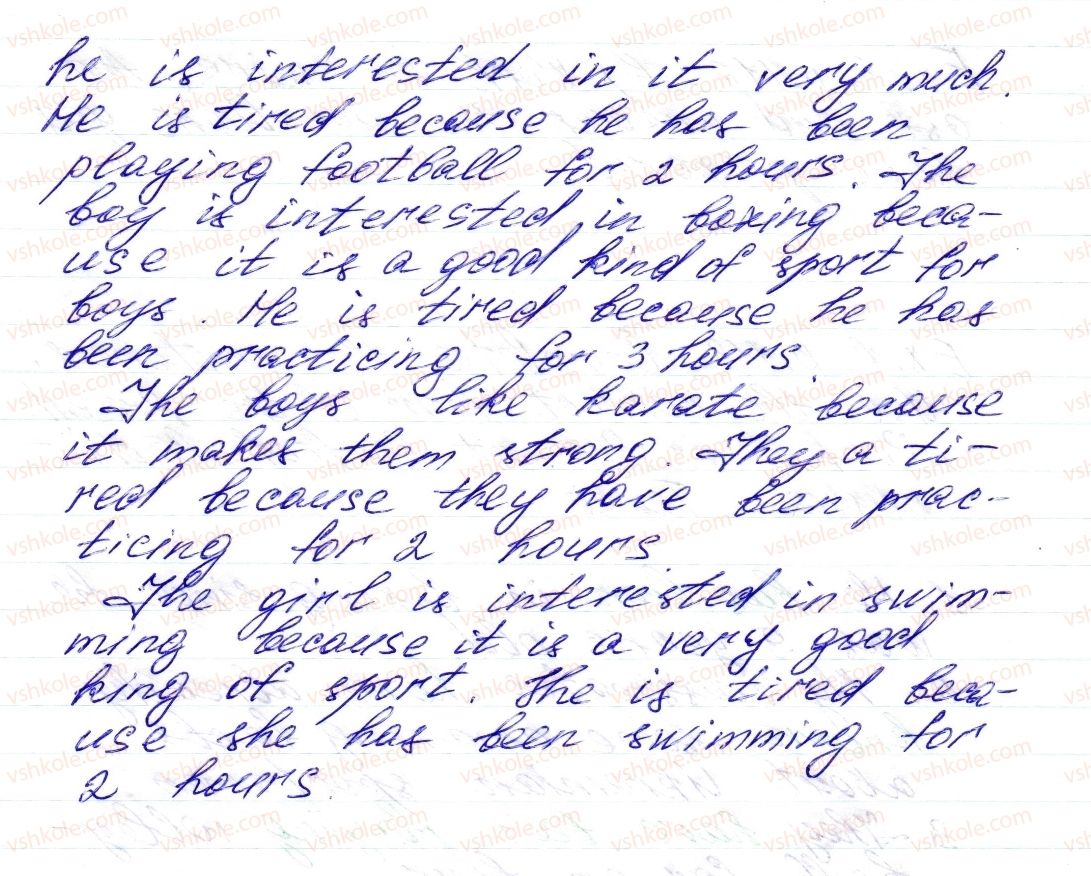 he is interested in it very much.
He is tired because he has been
playing football for 2 hours. The
boy is interested in boxing beca-
use it is a good kind of sport for
boys. He is tired because he has
been practicing for 3 hours.
The boys like karate because
it makes them strong. They a ti-
red because they have been prac-
ticing for 2 hours
The girl is interested in swim-
ming because it is a very good
king of sport. She is tired beca-
use she has been swimming for
2 hours.